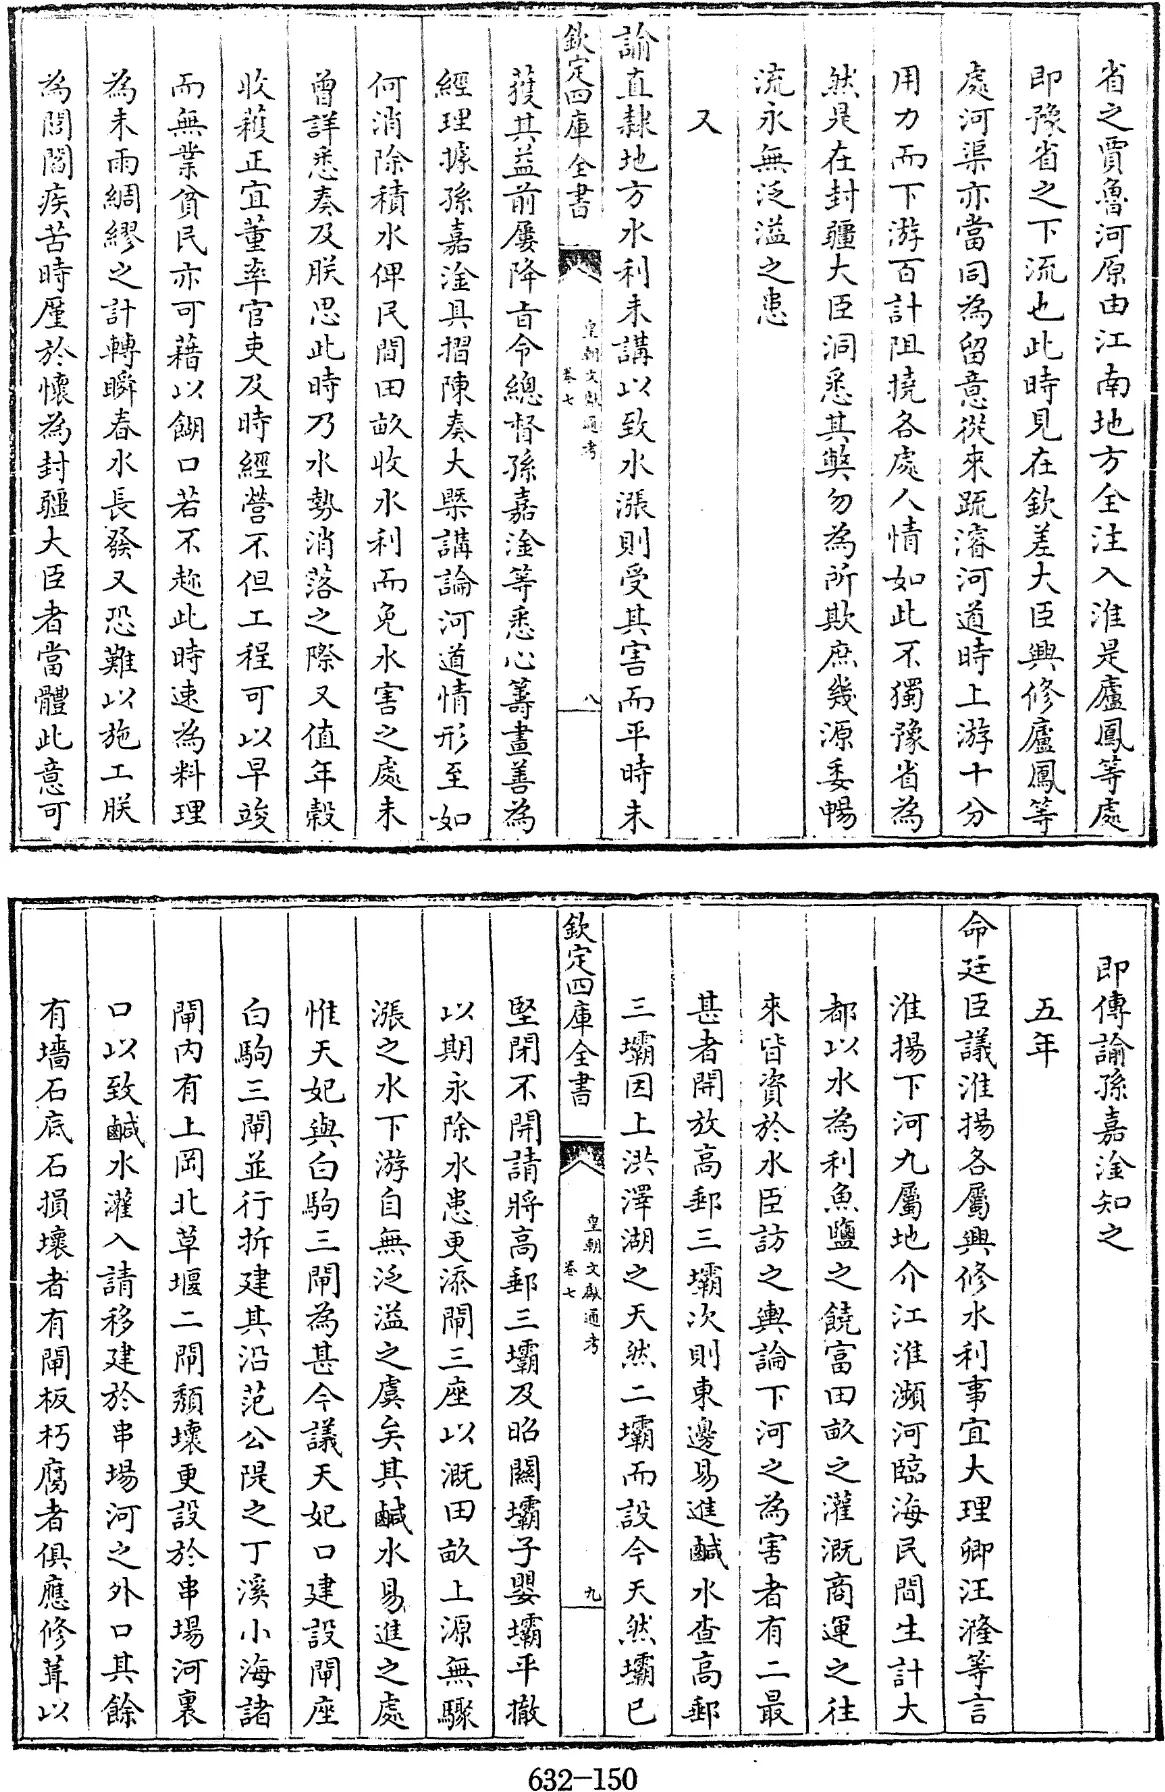 省之賈魯河原由江南地方全注入淮是廬鳳等處
即豫省之下流也此時見在欽差大臣興修廬鳳等
處河渠亦當同為留意從來疏濬河道時上游十分
用力而下游百計阻撓各處人情如此不獨豫省為
然是在封疆大臣洞悉其弊勿為所欺庶幾源委暢
流永無泛溢之患
又
諭直隸地方水利未講以致水漲則受其害而平時未
欽定四庫全書
皇朝文獻通考
卷七
八
獲其益前屢降旨令總督孫嘉淦等悉心籌畫善為
經理據孫嘉淦具摺陳奏大槩講論河道情形至如
何消除積水俾民間田畝收水利而免水害之處未
曾詳悉奏及朕思此時乃水勢消落之際又值年穀
收穫正宜董率官吏及時經營不但工程可以早竣
而無業貧民亦可藉以餬口若不趂此時速為料理
為未雨綢繆之計轉瞬春水長發又恐難以施工朕
為閭閻疾苦時厪於懷為封疆大臣者當體此意可
即傳諭孫嘉淦知之
五年
命廷臣議淮揚各屬興修水利事宜大理卿汪漋等言
淮揚下河九屬地介江淮瀕河臨海民間生計大
都以水為利魚鹽之饒富田畝之灌溉商運之往
來皆資於水臣訪之輿論下河之為害者有二最
甚者開放高郵三壩次則東邊易進鹹水查高郵
三壩因上洪澤湖之天然二壩而設今天然壩已
欽定四庫全書
皇朝文獻通考
卷七
九
堅閉不開請將高郵三壩及昭關壩子嬰壩平撤
以期永除水患更添閘三座以溉田畝上源無驟
漲之水下游自無泛溢之虞矣其鹹水易進之處
惟天妃與白駒三閘為甚今議天妃口建設閘座
白駒三閘並行拆建其沿范公隄之丁溪小海諸
閘內有上岡北草堰二閘頹壞更設於串場河裏
口以致鹹水灌入請移建於串場河之外口其餘
有墻石底石損壞者有閘板朽腐者俱應修葺以
632-150